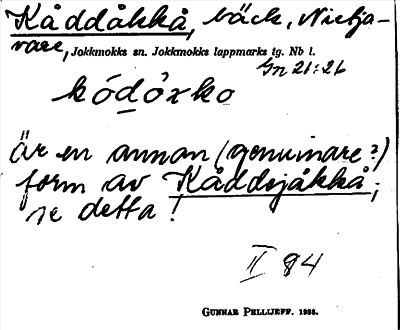 Kåddåkkå, bäck, Nietja-
vare, Jokkmokks sn. Jokkmokks lappmarks tg. Nb l.
Gn 21:26
kó́dó̀xko
är en annan (genuinare?)
form av Kåddejåkkå;
se detta!
II 84
GUNNAR PELLIJEFF. 1966.